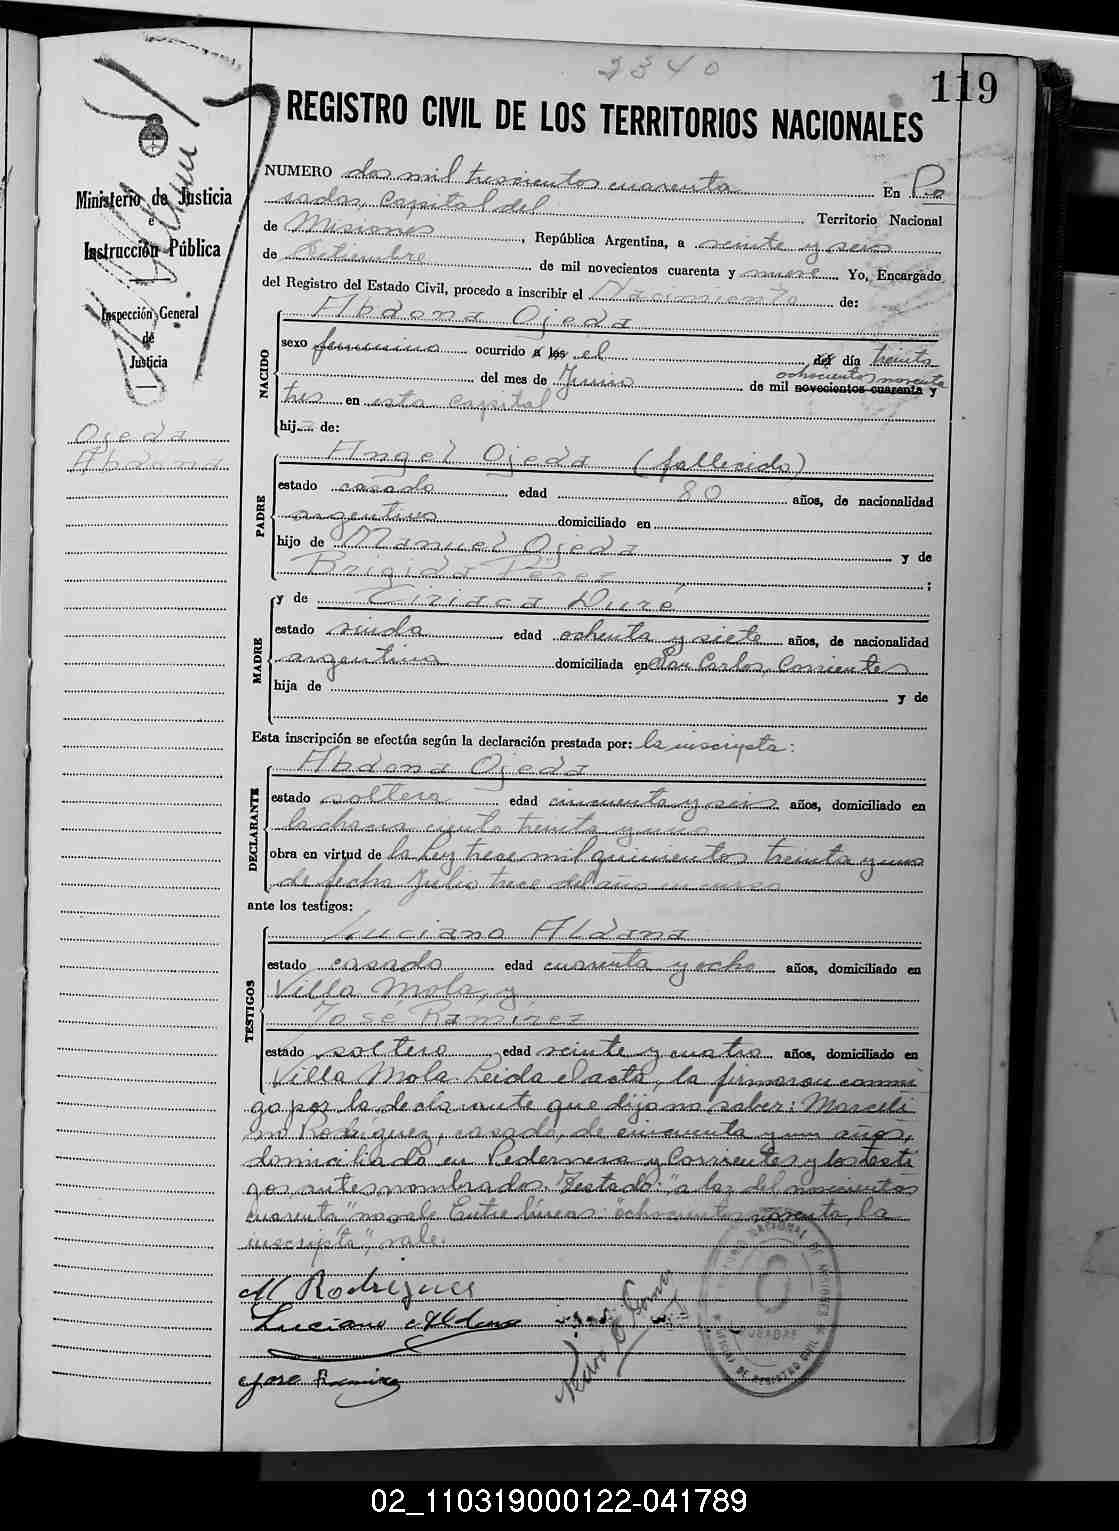 2340
119
REGISTRO CIVIL DE LOS TERRITORIOS NACIONALES
Ministerio de Justicia
e
Instrucción Pública
Inspección General
de
Justicia
Ojeda
Abdona
NUMERO dos mil trescientos cuarenta En Po
sadas, Capital del Territorio Nacional
de Misiones, República Argentina, a veinte y seis
de Setiembre de mil novecientos cuarenta y nueve Yo, Encargado
del Registro del Estado Civil, procedo a inscribir el Nacimiento de:
NACIDO
Abdona Ojeda
sexo femenino ocurrido a las el del día treinta
ochocientos noventa
del mes de Junio de mil novecientos cuarenta y
tres en esta capital
hija de:
PADRE
Angel Ojeda (fallecido)
estado casado edad 80 años, de nacionalidad
argentino domiciliado en
hijo de Manuel Ojeda y de
Brigida Perez ;
MADRE
y de Ciriaca Duré
estado viuda edad ochenta y siete años, de nacionalidad
argentina domiciliada en San Carlos, Corrientes
hija de y de
Esta inscripción se efectúa según la declaración prestada por: la inscripta:
DECLARANTE
Abdona Ojeda
estado soltera edad cincuenta y seis años, domiciliado en
la chacra ciento treinta y uno
obra en virtud de la Ley trece mil quinientos treinta y uno
de fecha Julio trece del año en curso
ante los testigos:
TESTIGOS
Luciano Aldana
estado casado edad cuarenta y ocho años, domiciliado en
Villa Mola, y
José Ramírez
estado soltero edad veinte y cuatro años, domiciliado en
Villa Mola. Leida el acta, la firmaron conmi
go por la declarante que dijo no saber: Marceli
no Rodríguez, casado, de cincuenta y un años,
domiciliado en Pedernera y Corrientes y los testi
gos antes nombrados. Testado: "a las del novecientos
cuarenta" no vale. Entre líneas: "ochocientos noventa, la
inscripta", vale.
M Rodrigues
Luciano Aldana
Jose Ramirez
Pedro D. Gomez
02_110319000122-041789